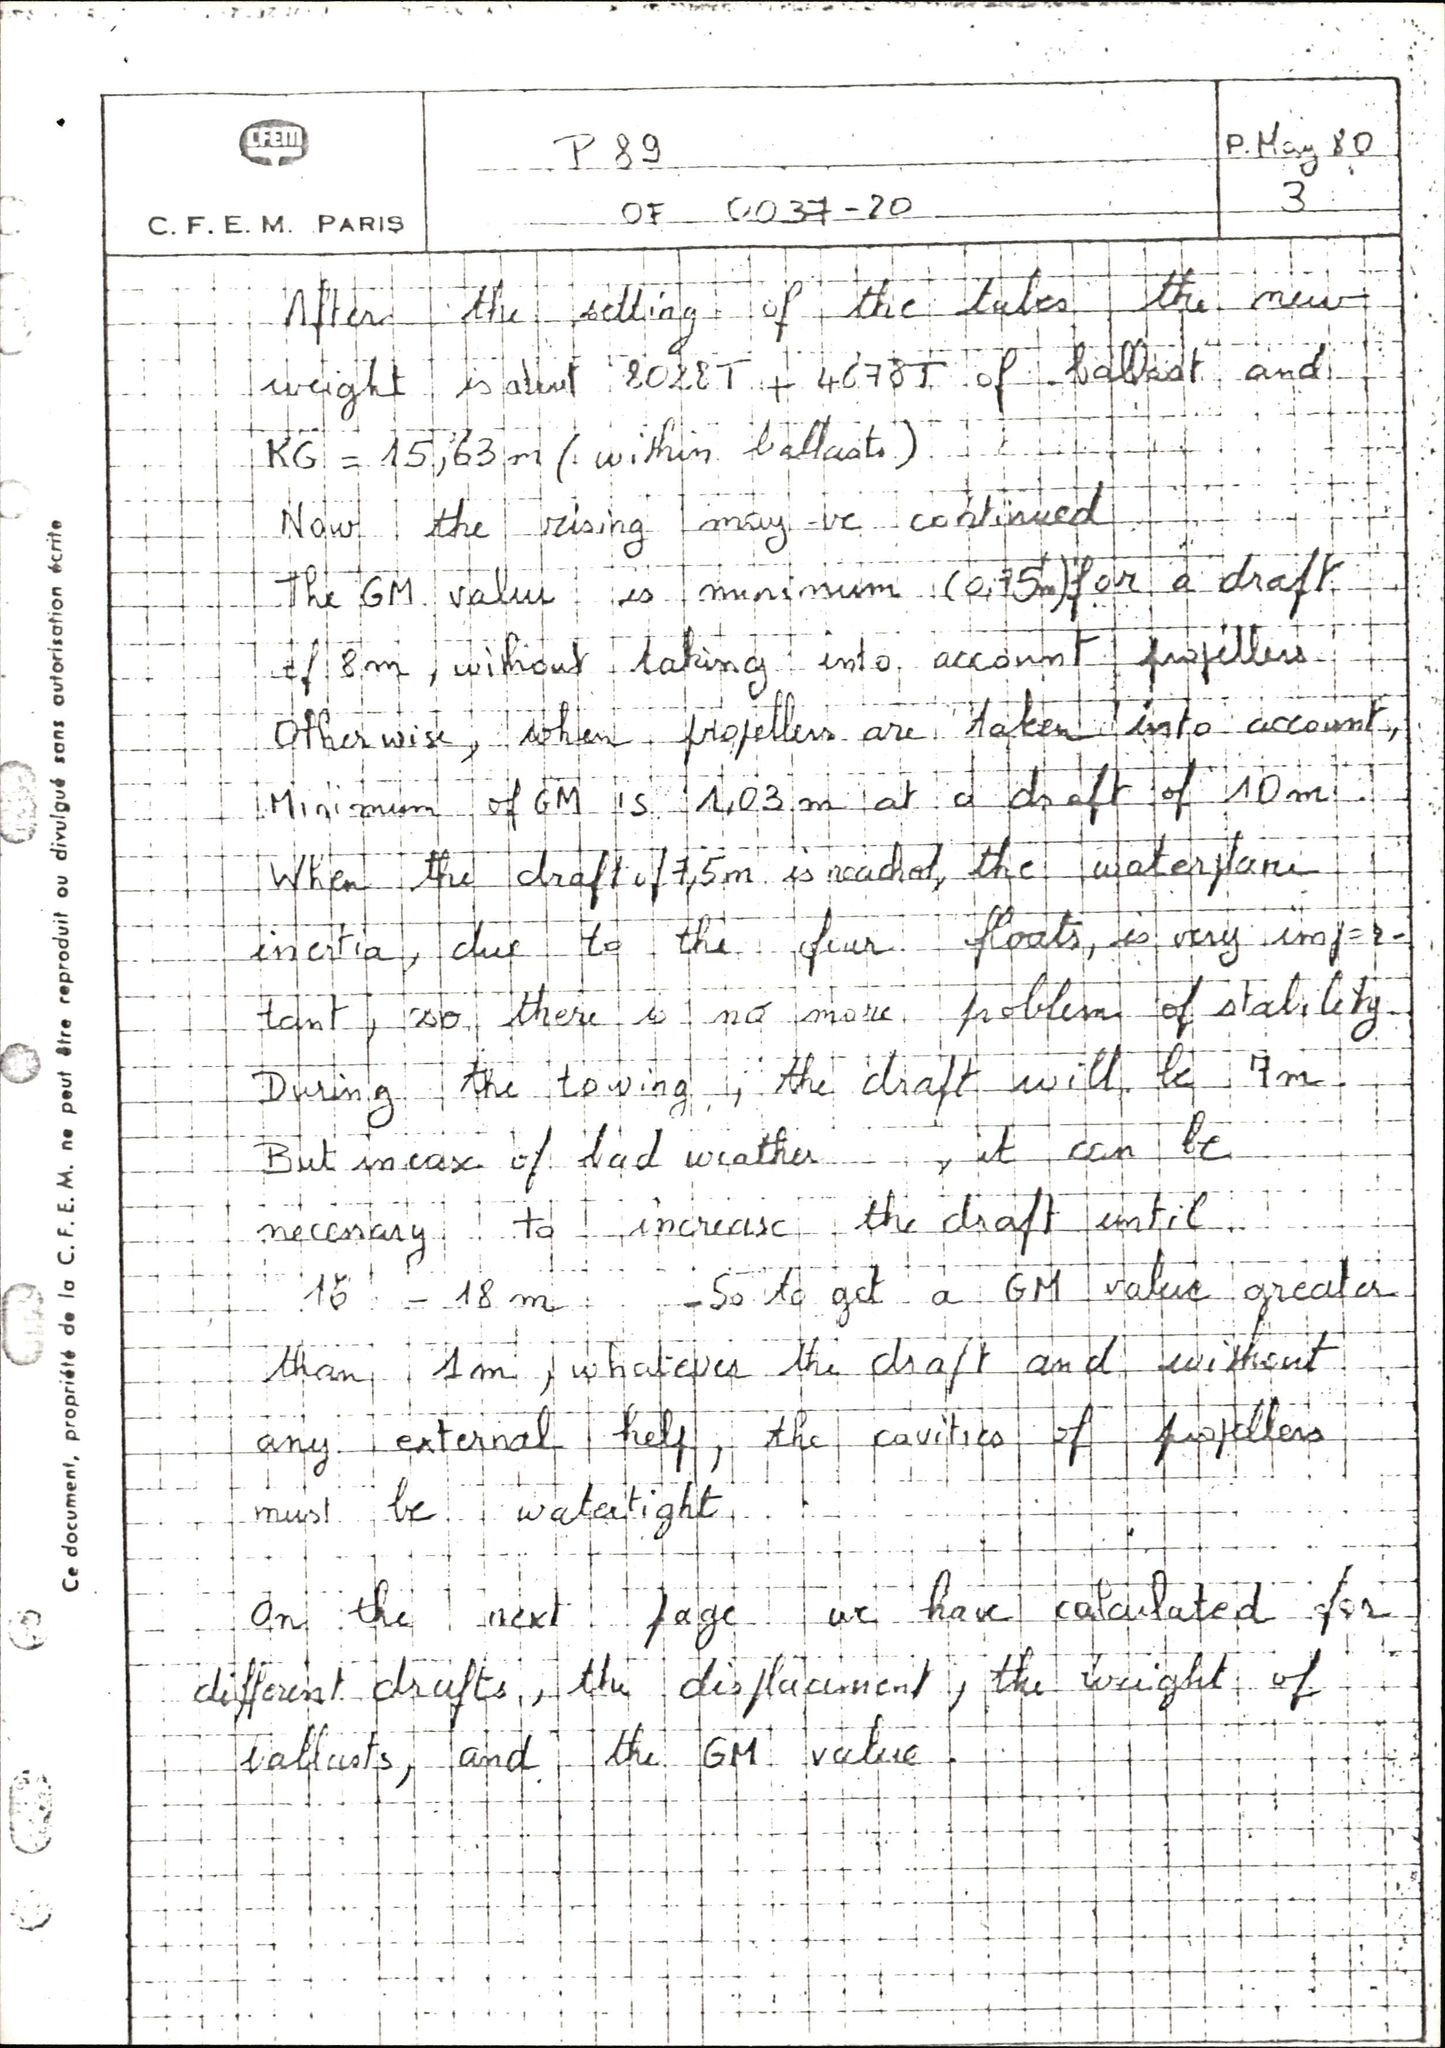 CFEM
C. F. E. M. PARIS
P 89
OF 0037-20
P. May 80
3
After the setting of the tubes the new
weight is about 8028T + 4678T of ballast and
KG = 15,63 m (within ballasts)
Now the rising may be continued
The GM value is minimum (0,75m) for a draft
of 8m, without taking into account propellers
Otherwise, when propellers are taken into account,
Minimum of GM is 1,03 m at a draft of 10 m.
When the draft of 7,5m is reached, the waterplane
inertia, due to the four floats, is very impor-
tant, so there is no more problem of stability
During the towing, the draft will be 7m.
But in case of bad weather , it can be
necessary to increase the draft until
16 - 18 m. - So to get a GM value greater
than 1m, whatever the draft and without
any external help, the cavities of propellers
must be watertight
On the next page we have calculated for
different drafts, the displacement, the weight of
ballasts, and the GM value.
Ce document, propriété de la C. F. E. M. ne peut être reproduit ou divulgué sans autorisation écrite